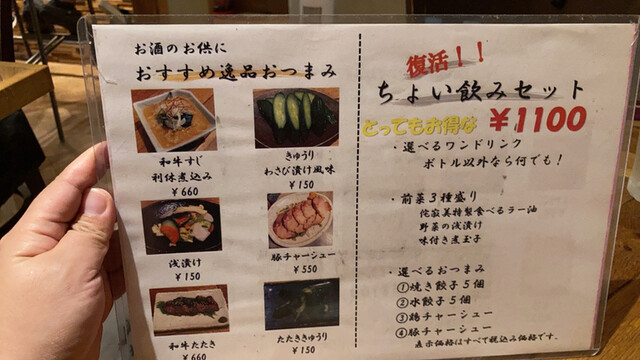 お酒のお供に
おすすめ逸品おつまみ
和牛すじ
利休煮込み
￥660
きゅうり
わさび漬け風味
￥150
浅漬け
￥150
豚チャーシュー
￥550
和牛たたき
￥660
たたききゅうり
￥150
復活！！
ちょい飲みセット
とってもお得な ￥1100
・選べるワンドリンク
ボトル以外なら何でも！
・前菜３種盛り
侘寂美特製食べるラー油
野菜の浅漬け
味付き煮玉子
・選べるおつまみ
①焼き餃子５個
②水餃子５個
③鶏チャーシュー
④豚チャーシュー
表示価格はすべて税込み価格です。